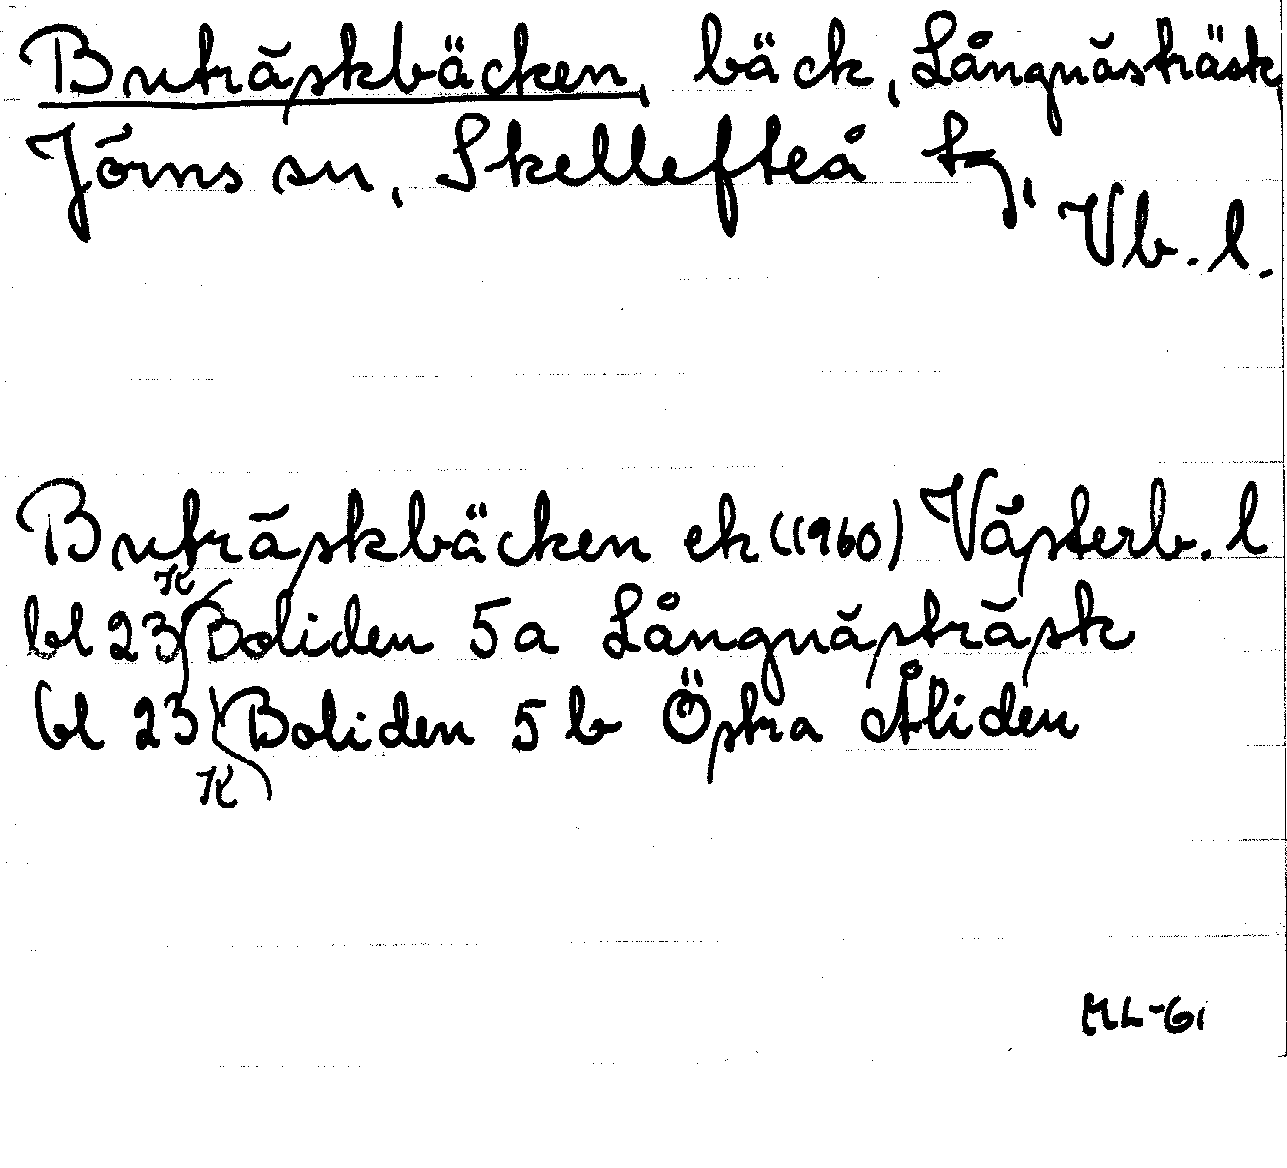 Buträskbäcken, bäck, Långnästräsk,
Jörns sn, Skellefteå tg,
Vb. l.
Buträskbäcken ek (1960) Västerb. l
bl 23 K Boliden 5a Långnästräsk
bl 23 K Boliden 5 b Östra Åliden
ML-61